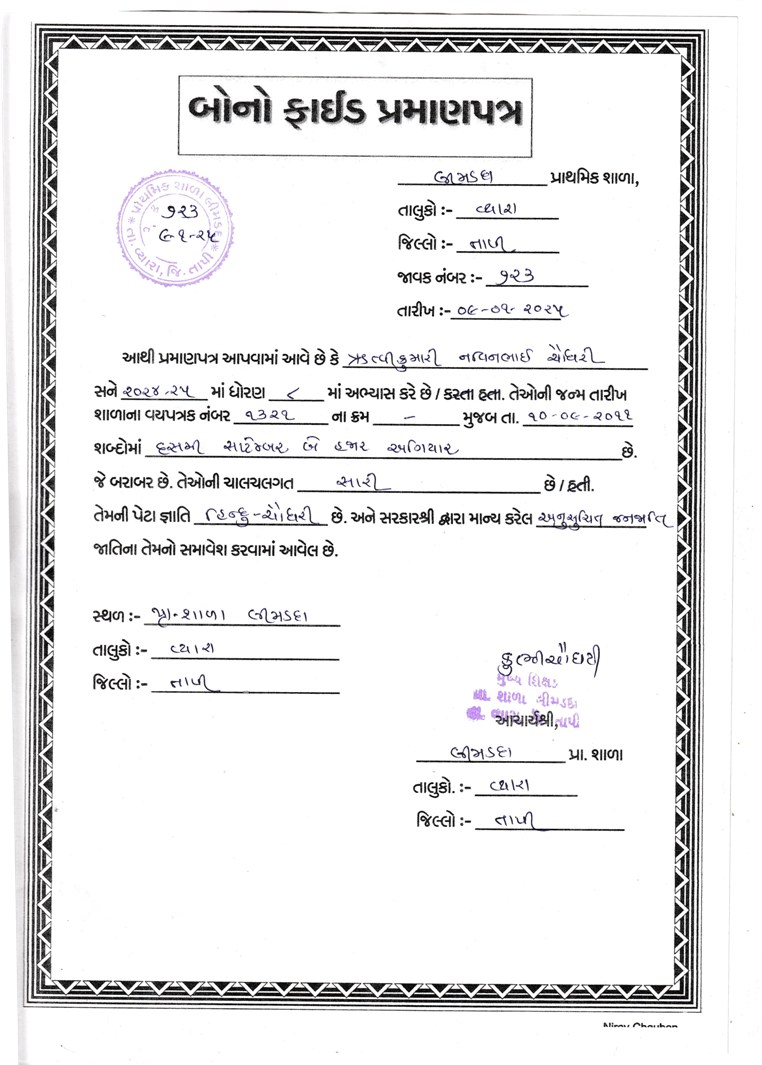 બોનો ફાઈડ પ્રમાણપત્ર
લીમડદા પ્રાથમિક શાળા,
પ્રાથમિક શાળા લીમડદા
તા. વ્યારા, જિ. તાપી
૧૨૩
૯-૧-૨૫
તાલુકો :- વ્યારા
જિલ્લો :- તાપી
જાવક નંબર :- ૧૨૩
તારીખ :- ૦૯-૦૧-૨૦૨૫
આથી પ્રમાણપત્ર આપવામાં આવે છે કે ઋત્વીકુમારી નવિનભાઈ ચૌધરી
સને ૨૦૨૪-૨૫ માં ધોરણ ૮ માં અભ્યાસ કરે છે / કરતા હતા. તેઓની જન્મ તારીખ
શાળાના વયપત્રક નંબર ૧૩૨૧ ના ક્રમ - મુજબ તા. ૧૦-૦૯-૨૦૧૧
શબ્દોમાં દસમી સપ્ટેમ્બર બે હજાર અગિયાર છે.
જે બરાબર છે. તેઓની ચાલચલગત સારી છે / હતી.
તેમની પેટા જ્ઞાતિ હિન્દુ-ચૌધરી છે. અને સરકારશ્રી દ્વારા માન્ય કરેલ અનુસુચિત જનજાતિ
જાતિના તેમનો સમાવેશ કરવામાં આવેલ છે.
સ્થળ :- પ્રા.શાળા લીમડદા
તાલુકો :- વ્યારા
જિલ્લો :- તાપી
મુખ્ય શિક્ષક
પ્રા. શાળા લીમડદા
તા. વ્યારા જિ. તાપી
આચાર્યશ્રી,
લીમડદા પ્રા. શાળા
તાલુકો. :- વ્યારા
જિલ્લો :- તાપી